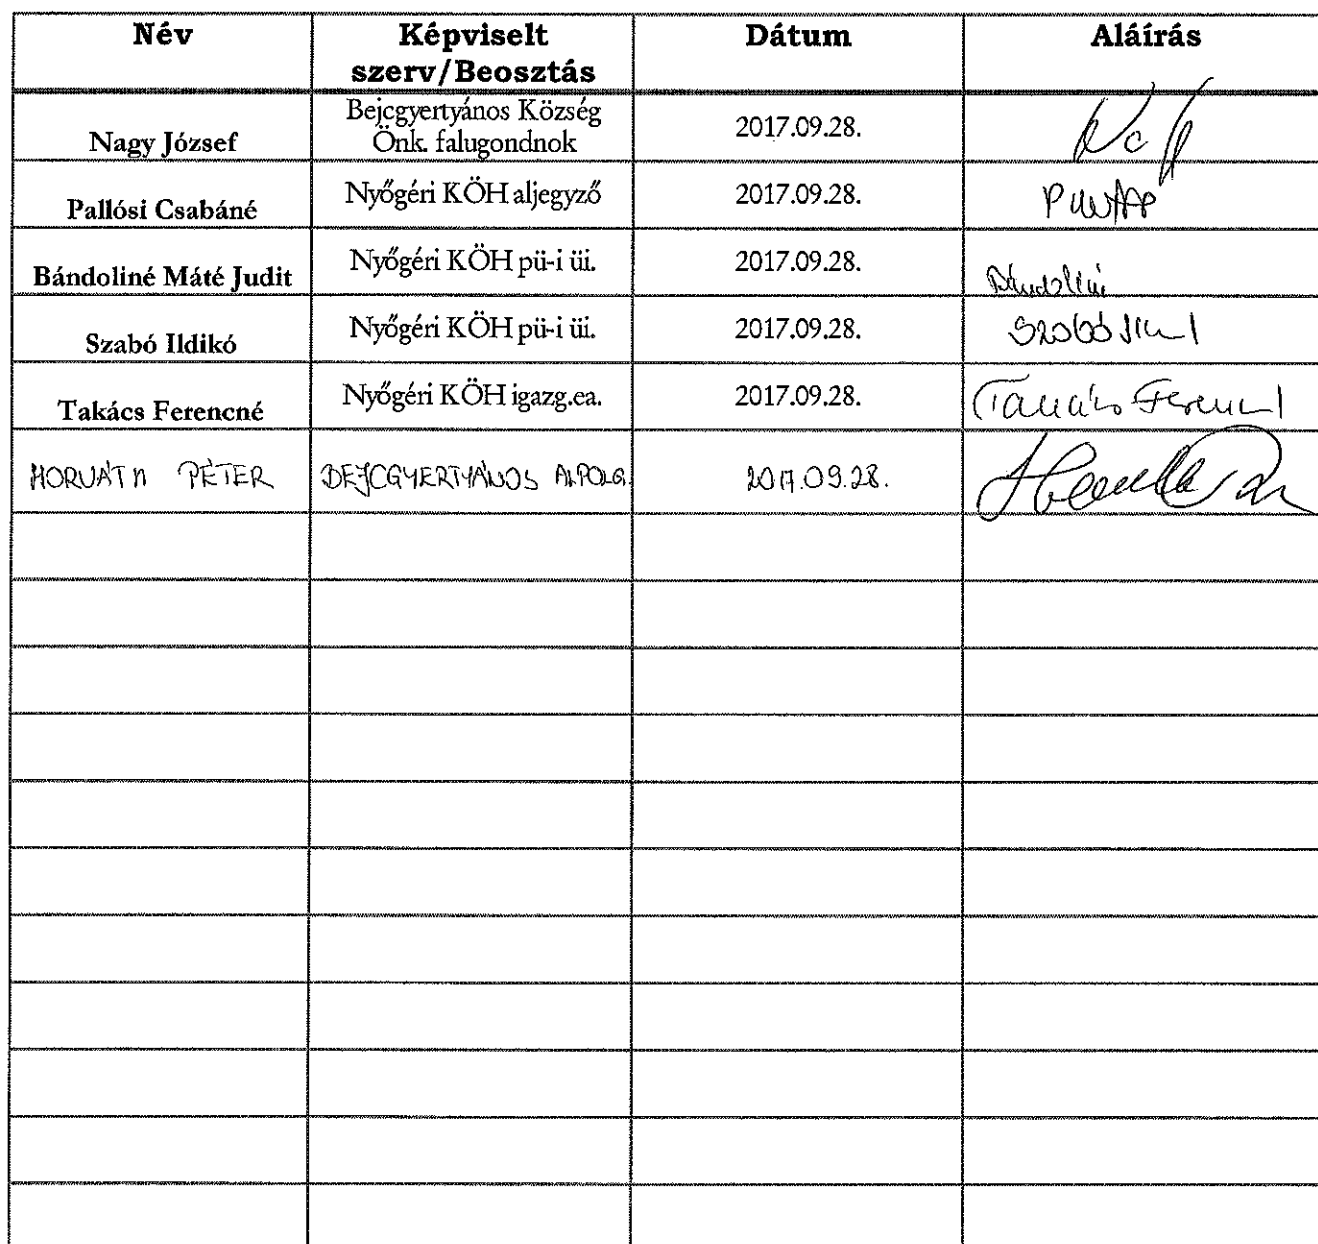 Név Képviselt szerv/Beosztás Dátum Aláírás
Nagy József Bejcgyertyános Község Önk. falugondnok 2017.09.28.
Pallósi Csabáné Nyőgéri KÖH aljegyző 2017.09.28.
Bándoliné Máté Judit Nyőgéri KÖH pü-i üi. 2017.09.28. Bándoliné
Szabó Ildikó Nyőgéri KÖH pü-i üi. 2017.09.28. Szabó
Takács Ferencné Nyőgéri KÖH igazg.ea. 2017.09.28. Takács Ferencné
HORVÁTH PÉTER BEJCGYERTYÁNOS ALPOLG. 2017.09.28.